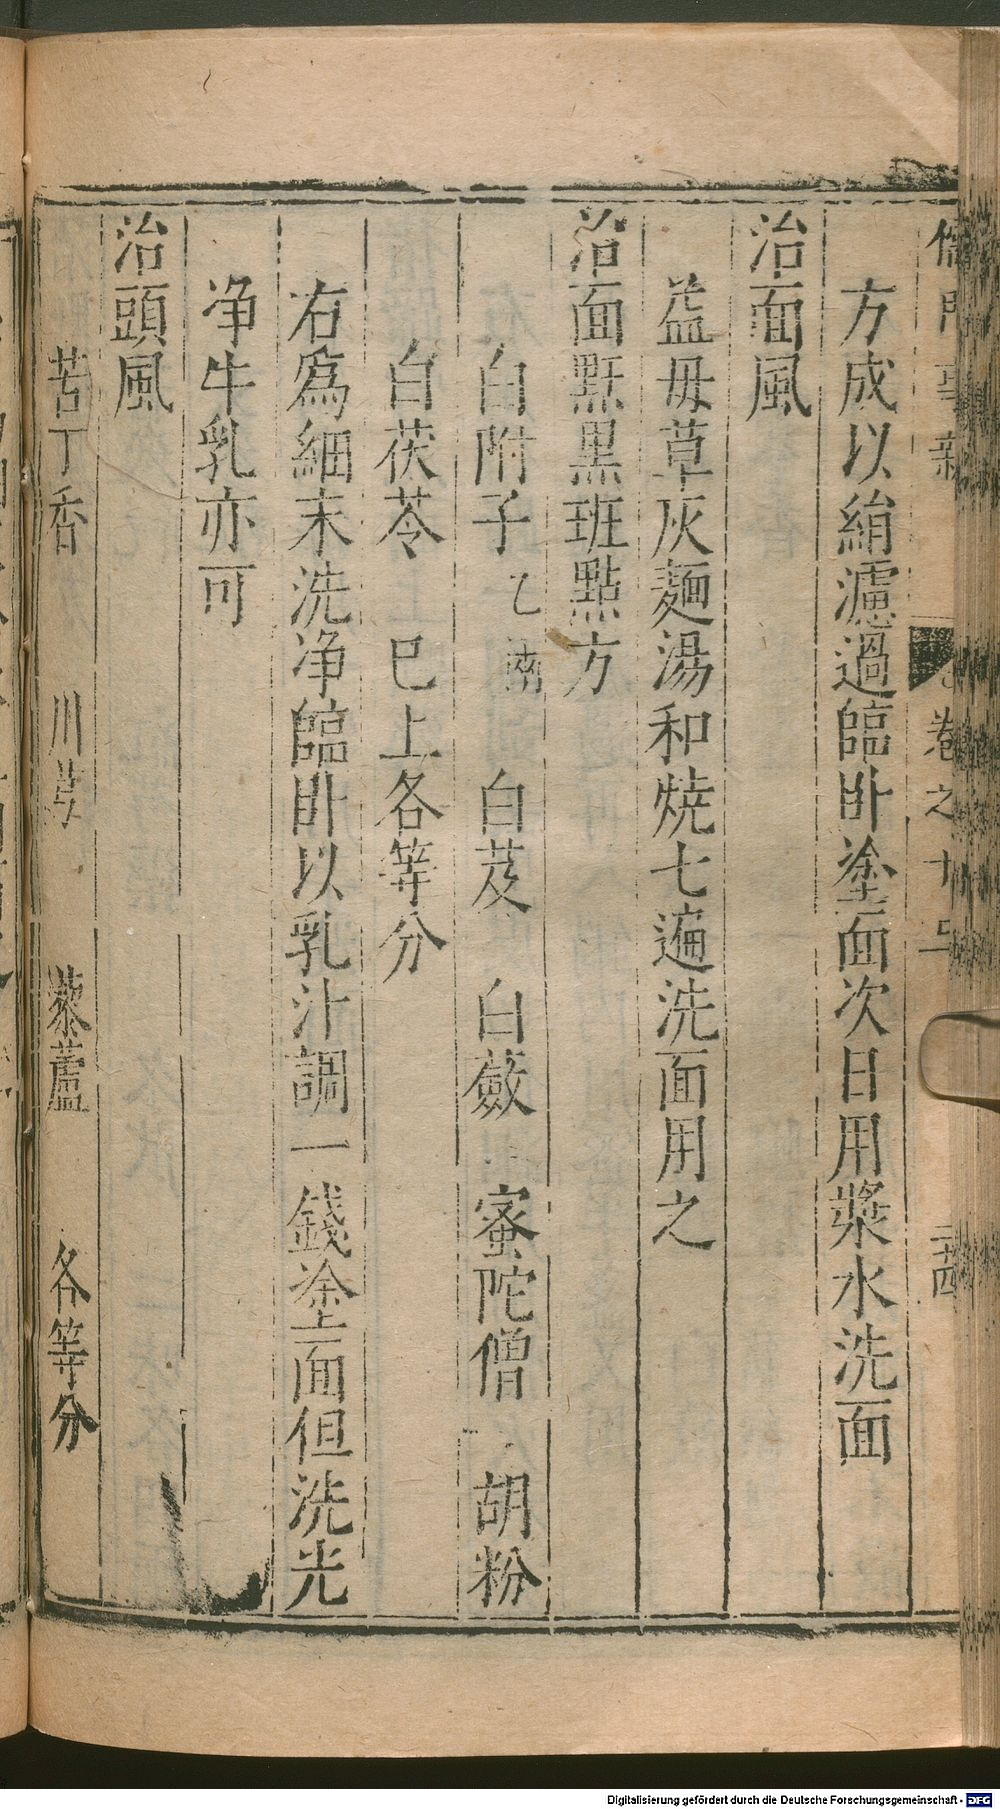 儒門事親 卷之十五 二十四
方成以絹濾過臨卧塗面次日用漿水洗面
治面風
益母草灰麵湯和燒七遍洗面用之
治面䵟黑班點方
白附子 乙兩 白芨 白蘞 蜜陀僧 胡粉
白茯苓 巳上各等分
右為細末洗净臨卧以乳汁調一錢塗面但洗光
净牛乳亦可
治頭風
苦丁香 川芎 藜蘆 各等分
Digitalisierung gefördert durch die Deutsche Forschungsgemeinschaft - DFG